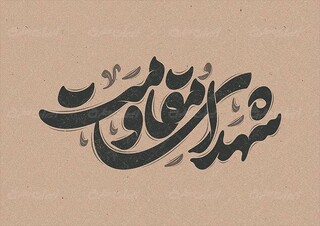 شهدای مقاومت